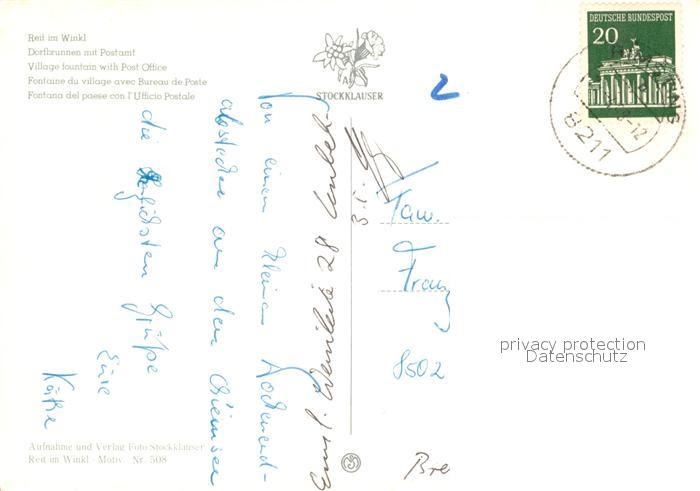 Reit im Winkl
Dorfbrunnen mit Postamt
Village fountain with Post Office
Fontaine du village avec Bureau de Poste
Fontana del paese con l'Ufficio Postale
STOCKKLAUSER
DEUTSCHE BUNDESPOST
20
8211
Von einem kleinen Wochenend-
abstecher an den Chiemsee
die herzlichsten Grüße
Eure
Käthe
28
Fam.
Franz
8502
privacy protection
Datenschutz
Bre
Aufnahme und Verlag Foto Stockklauser
Reit im Winkl - Motiv. Nr. 508